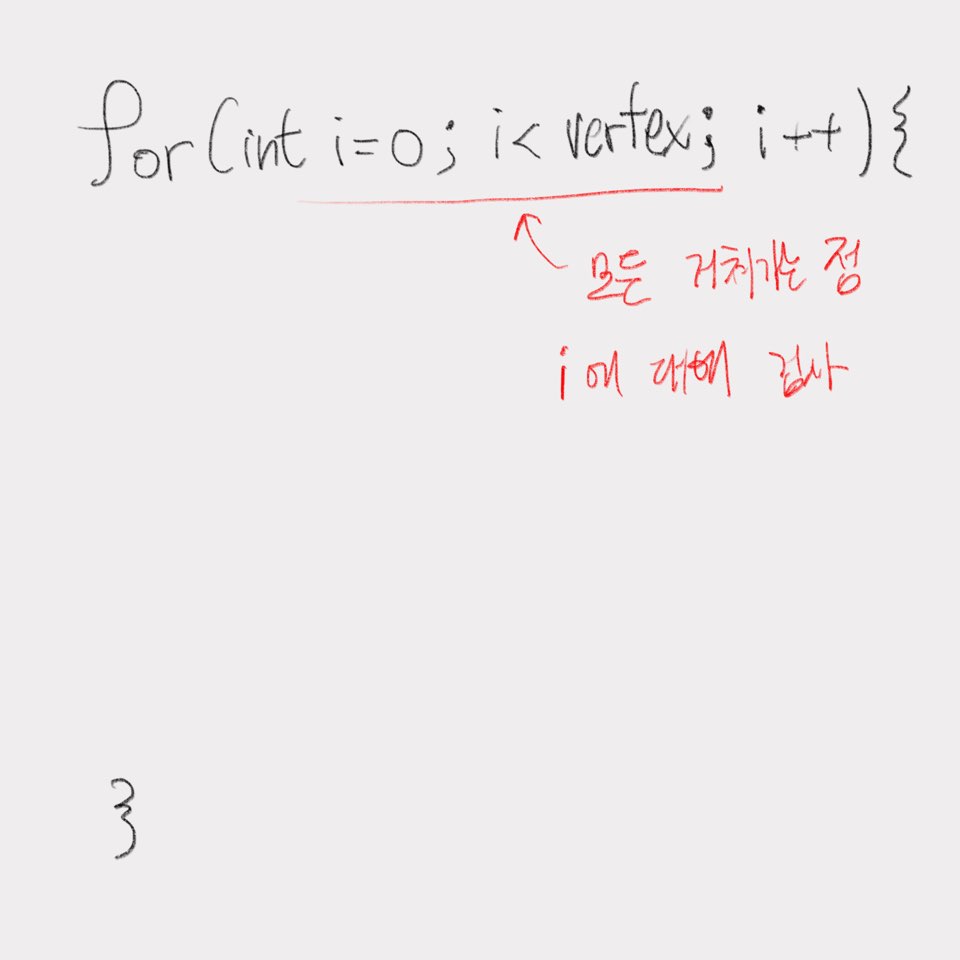 for(int i=0; i< vertex; i++){
모든 거쳐가는 점
i에 대해 검사
}